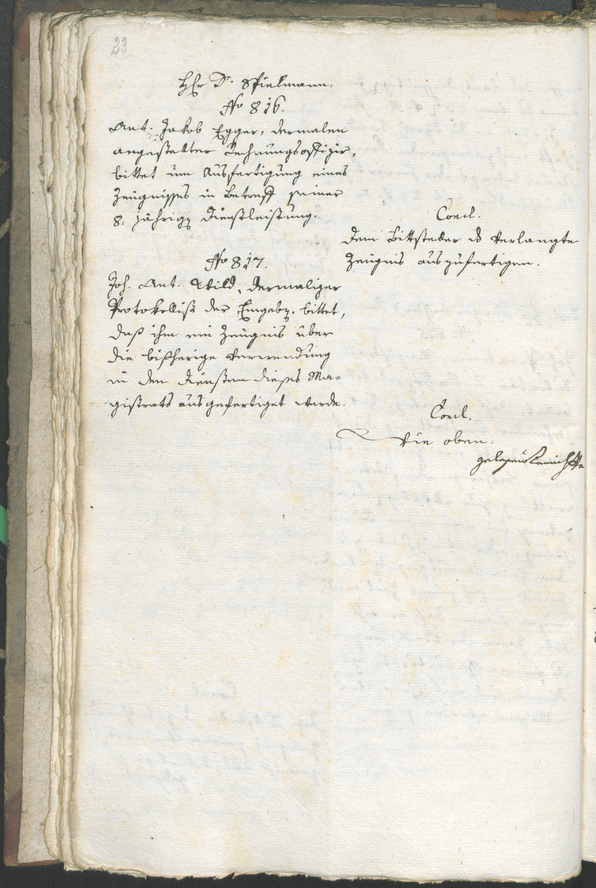 23
H̄r Dr. Spielmann.
No 816.
Ant. Jakob Egger, dermalen
angestellter Rechnungsoffizir,
bittet um Ausfertigung eines
Zeugnisses in Betreff seiner
8. jährig. Dienstleistung.
Concl.
Dem Bittsteller ds verlangte
Zeugnis auszufertigen.
No 817.
Joh. Ant. Wild, dermaliger
Protokollist des Eingebg. bittet,
daß ihm ein Zeugnis über
die bißherige Verwendung
in den Diensten dieses Ma-
gistrats ausgefertiget werde.
Concl.
Wie oben.